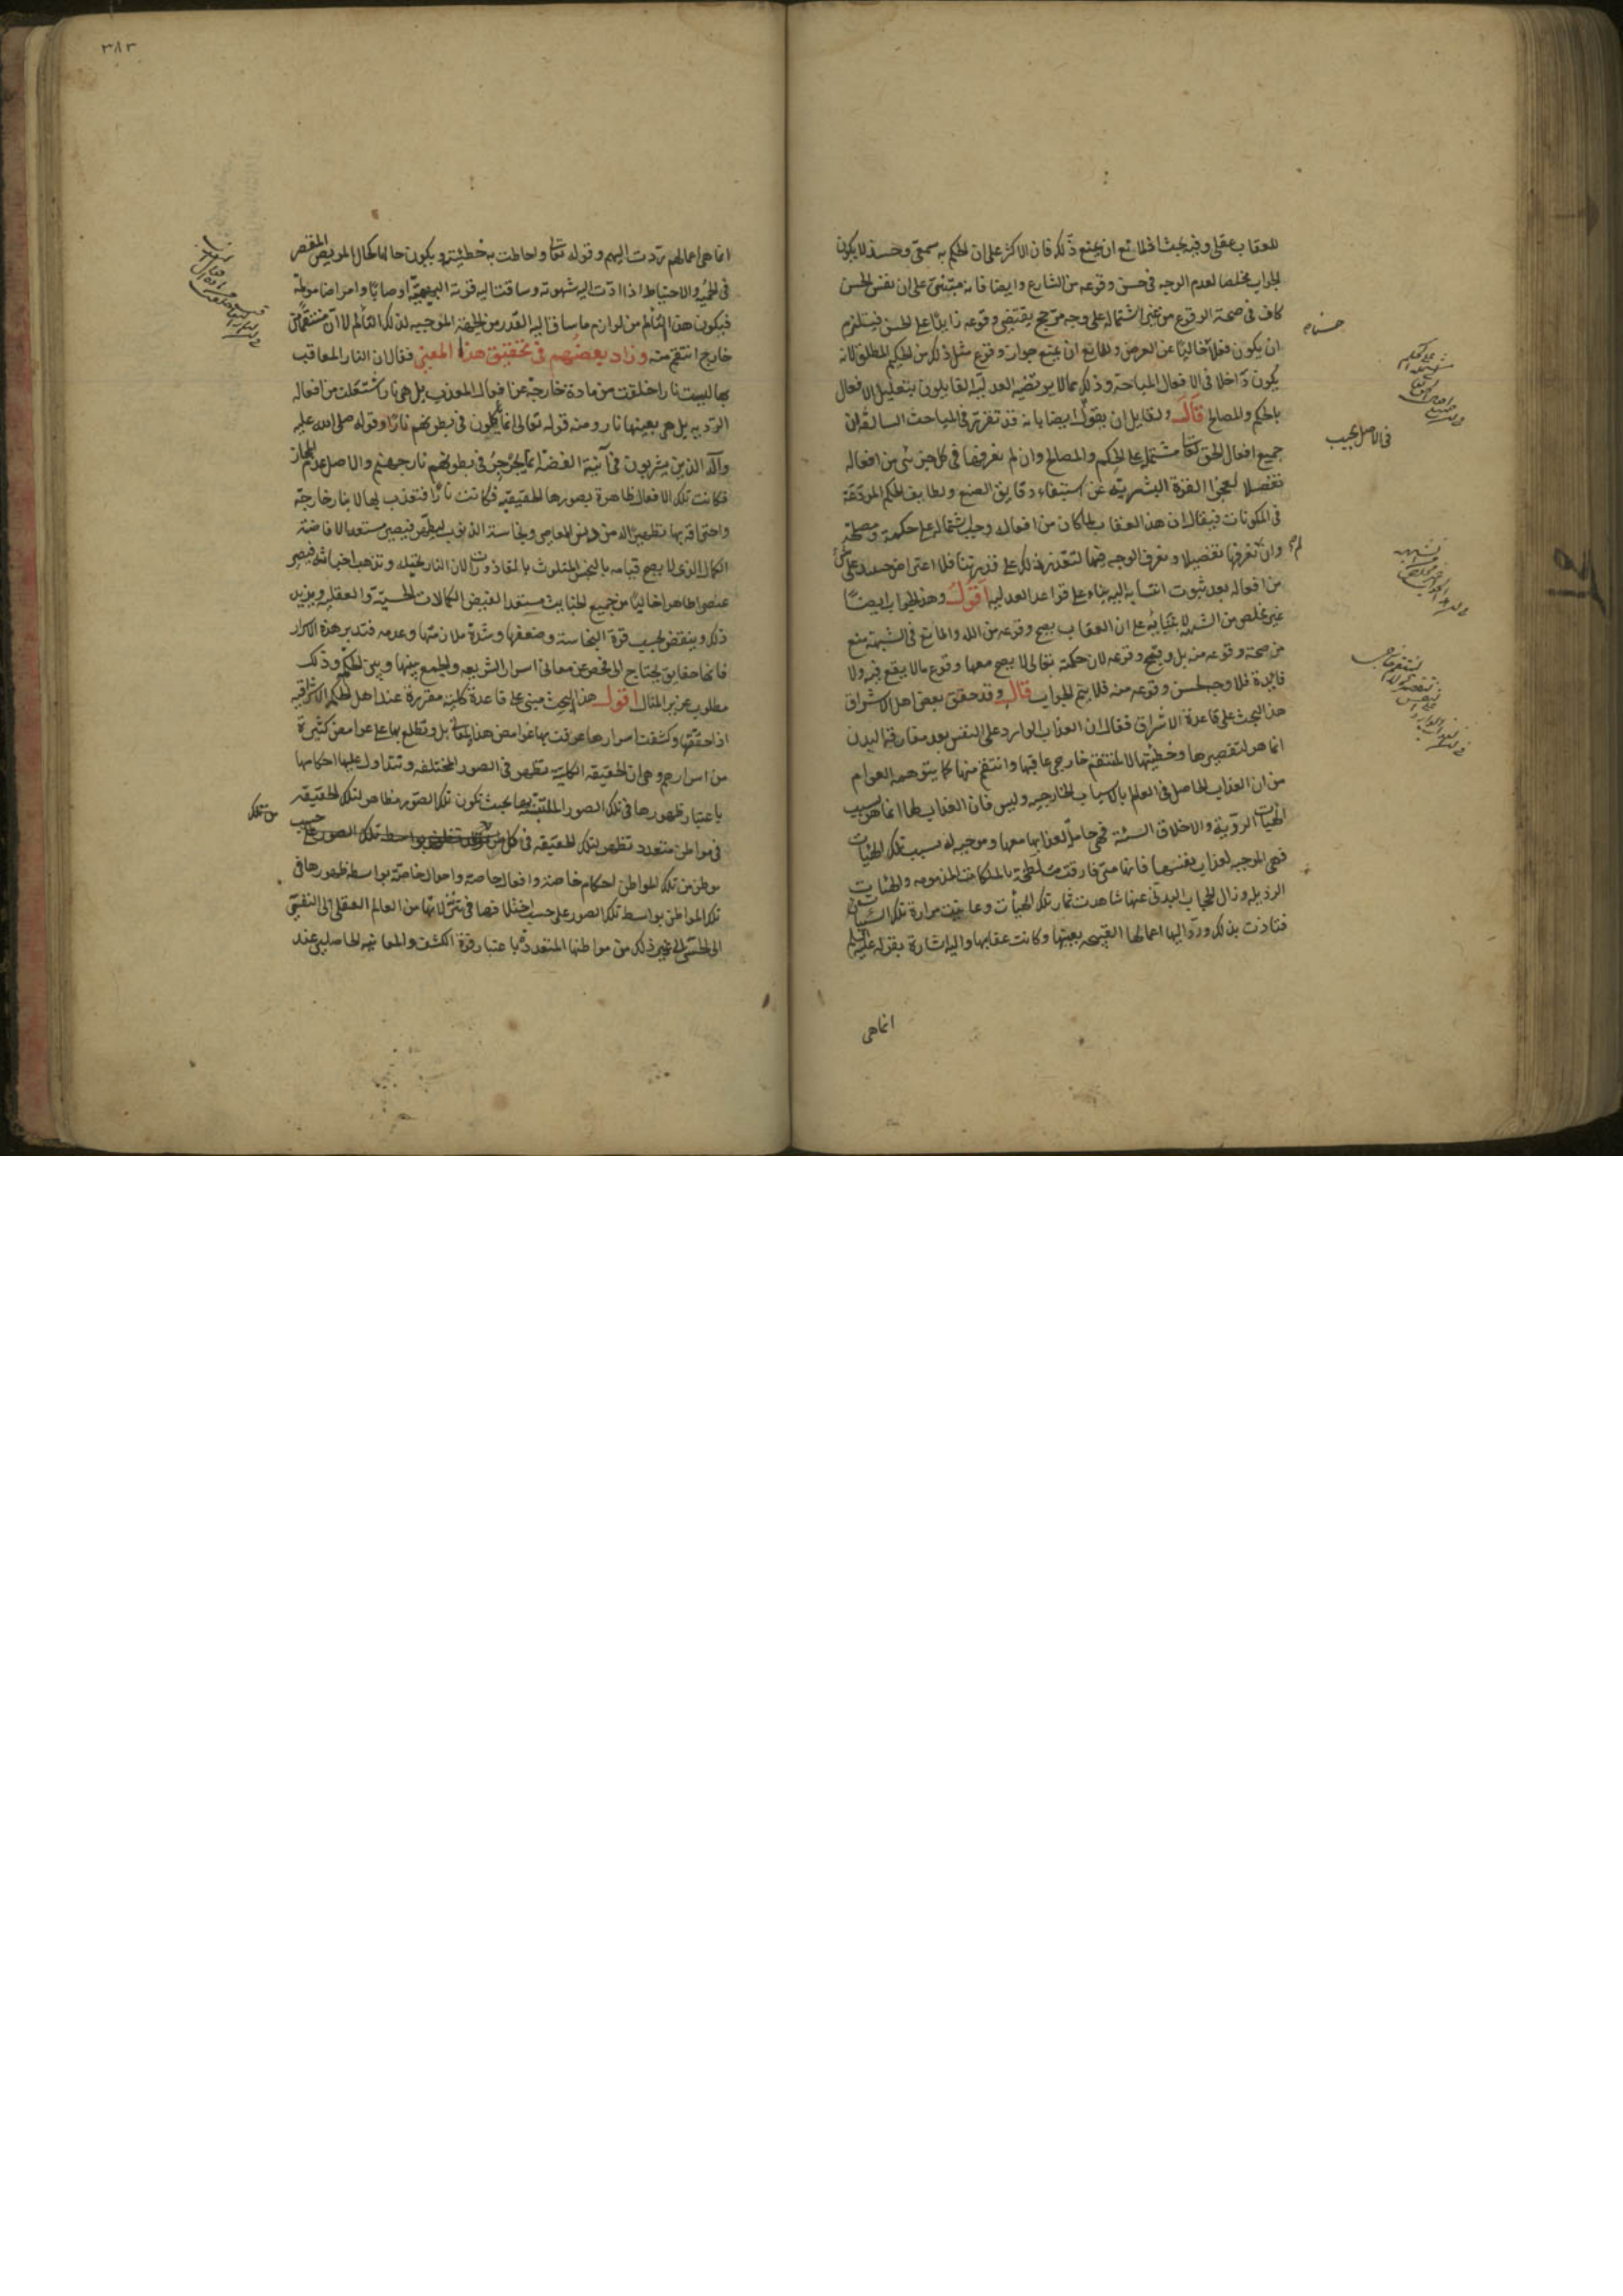 للعقاب عقلى وفيه بحث اذ للمانع ان يمنع ذلك فان الاكثر على ان الحكم به سمعى وحينئذ لا يكون
الجواب مخلصا لعدم الوجه فى حسن وقوعه من الشارع وايضا فانه مبتنى على ان نفس الحسن
كاف فى صحة الوقوع من غير اشتماله على وجه مرجح يقتضى وقوعه زايدا على الحسن فيستلزم
ان يكون فعلا خاليا عن الغرض وللمانع ان يمنع جواز وقوع مثل ذلك من الحكيم المطلق لانه
يكون داخلا فى الافعال المباحة وذلك مما لا يرتضيه العدلية القايلون بتعليل الافعال
بالحكم والمصالح قال ولقايل ان يقول ايضا بانه قد تقرر فى المباحث السالفة ان
جميع افعال الحق تعالى مشتملة على الحكم والمصالح وان لم نعرفها فى كل جزئى من افعاله
تفصيلا لعجز القوة البشرية عن استيفاء دقايق الصنع ولطايف الحكم المودعة
فى المكونات فيقال ان هذا العقاب لما كان من افعاله وجب اشتماله على حكمة ومصلحة
وان لم نعرفها تفصيلا ونعرف الوجه فيها لتعذر ذلك على قدرتنا فلا اعتراض حينئذ على شئ
من افعاله بعد ثبوت انتسابه اليه بناء على قواعد العدلية اقول وهذا الجواب ايضا
غير مخلص من الشبهة لابتنائه على ان العقاب يصح وقوعه من الله والمانع فى الشبهة منع
من صحة وقوعه منه بل وقبح وقوعه لان حكمته تعالى لا يصح معها وقوع ما لا ينفع فيه ولا
فايدة فلا وجه لحسن وقوعه منه فلا يتم الجواب قال وقد حقق بعض اهل الاشراق
هذا البحث على قاعدة الاشراق فقال ان العذاب الوارد على النفس بعد مفارقة البدن
انما هو لتقصيرها وخطيئتها لا لمنتقم خارجى عاقبها وانتقم منها كما يتوهمه العوام
من ان العذاب الحاصل فى العالم بالاسباب الخارجية وليس فان العذاب لها انما هو بسبب
الهيآت الردية والاخلاق السيئة فهى حاملة لعذابها معها وموجبة له بسبب تلك الهيآت
فهى الموجبة لعذاب نفسها فانها متى فارقت متلطخة بالملكات المذمومة والهيئات
الرذيلة وزال الحجاب البدنى عنها شاهدت ثمار تلك الهيأت وعاينت مرارة تلك السيئات
فتاذت بذلك ورد اليها اعمالها القبيحة بعينها وكانت عقابها واليه اشارة بقوله عليه السلم
انما هى
حسنا م
فى الاصل يجيب
٣٨٣
انما هى اعمالهم ترد اليهم وقوله تعالى واحاطت به خطيئته ويكون حالها كحال المريض المقصر
فى الحمية والاحتياط اذا ادت اليه شهوته وساقت اليه قوته البهيمية اوصابا وامراضا مولمة
فيكون هذا التألم من لوازم ما ساق اليه القدر من الحركة الموجبة لذلك التألم لا ان منتقما من
خارج انتقم منه وزاد بعضهم فى تحقيق هذا المعنى فقال ان النار المعاقب
بها ليست نارا خلقت من مادة خارجة عن افعال المعذب بل هى نار اشتعلت من افعاله
الردية بل هى بعينها نار ومنه قوله تعالى انما ياكلون فى بطونهم نارا وقوله صلى الله عليه
وآله الذين يشربون فى آنية الفضة انما يجرجر فى بطونهم نار جهنم والاصل عدم المجاز
فكانت تلك الافعال ظاهرة بصورها الحقيقية فكانت نارا فتعذب بها لا بنار خارجة
واحتراقه بها تطهيرا له من دنس المعاصى ونجاسة الذنوب ليطهر فيصير مستعدا لافاضة
الكمال الذى لا يصح قيامه بالنجس المتلوث بالقاذورات لان النار تحيله وتذهب اخباثه فيصير
عنصرا طاهرا خاليا من جميع الخبايث مستعدا لفيض الكمالات الحسية والعقلية ويزيد
ذلك وينقص بحسب قوة النجاسة وضعفها وشدة ملازمتها وعدمه فتدبر هذه الاسرار
فانها حقايق يحتاج الى فحص عن معانى اسرار الشريعة والجمع بينها وبين الحكمة وذلك
مطلوب عزيز المنال اقول هذا البحث مبنى على قاعدة كلية مقررة عند اهل الحكمة الاشراقية
اذا حققتها وكشفت اسرارها عرفت بها غوامض هذا المعانى بل وتطلع بها على غوامض كثيرة
من اسرارهم وهى ان الحقيقة الكلية تظهر فى الصور المختلفة وتتداول عليها احكامها
باعتبار ظهورها فى تلك الصور المتلبسة بها بحيث تكون تلك الصور مظاهر لتلك الحقيقة
فى مواطن متعدد تظهر لتلك الحقيقة فى كل تلك الصور على حسب
موطن من تلك المواطن احكام خاصة وافعال خاصة واحوال خاصة بواسطة ظهورها فى
تلك المواطن بواسطة تلك الصور على حسب اختلافها فى تنزلاتها من العالم العقلى الى النفسى
الى الحسى الى غير ذلك من مواطنها المتعددة باعتبار قوة الكشف والمعاينة الحاصلين عند